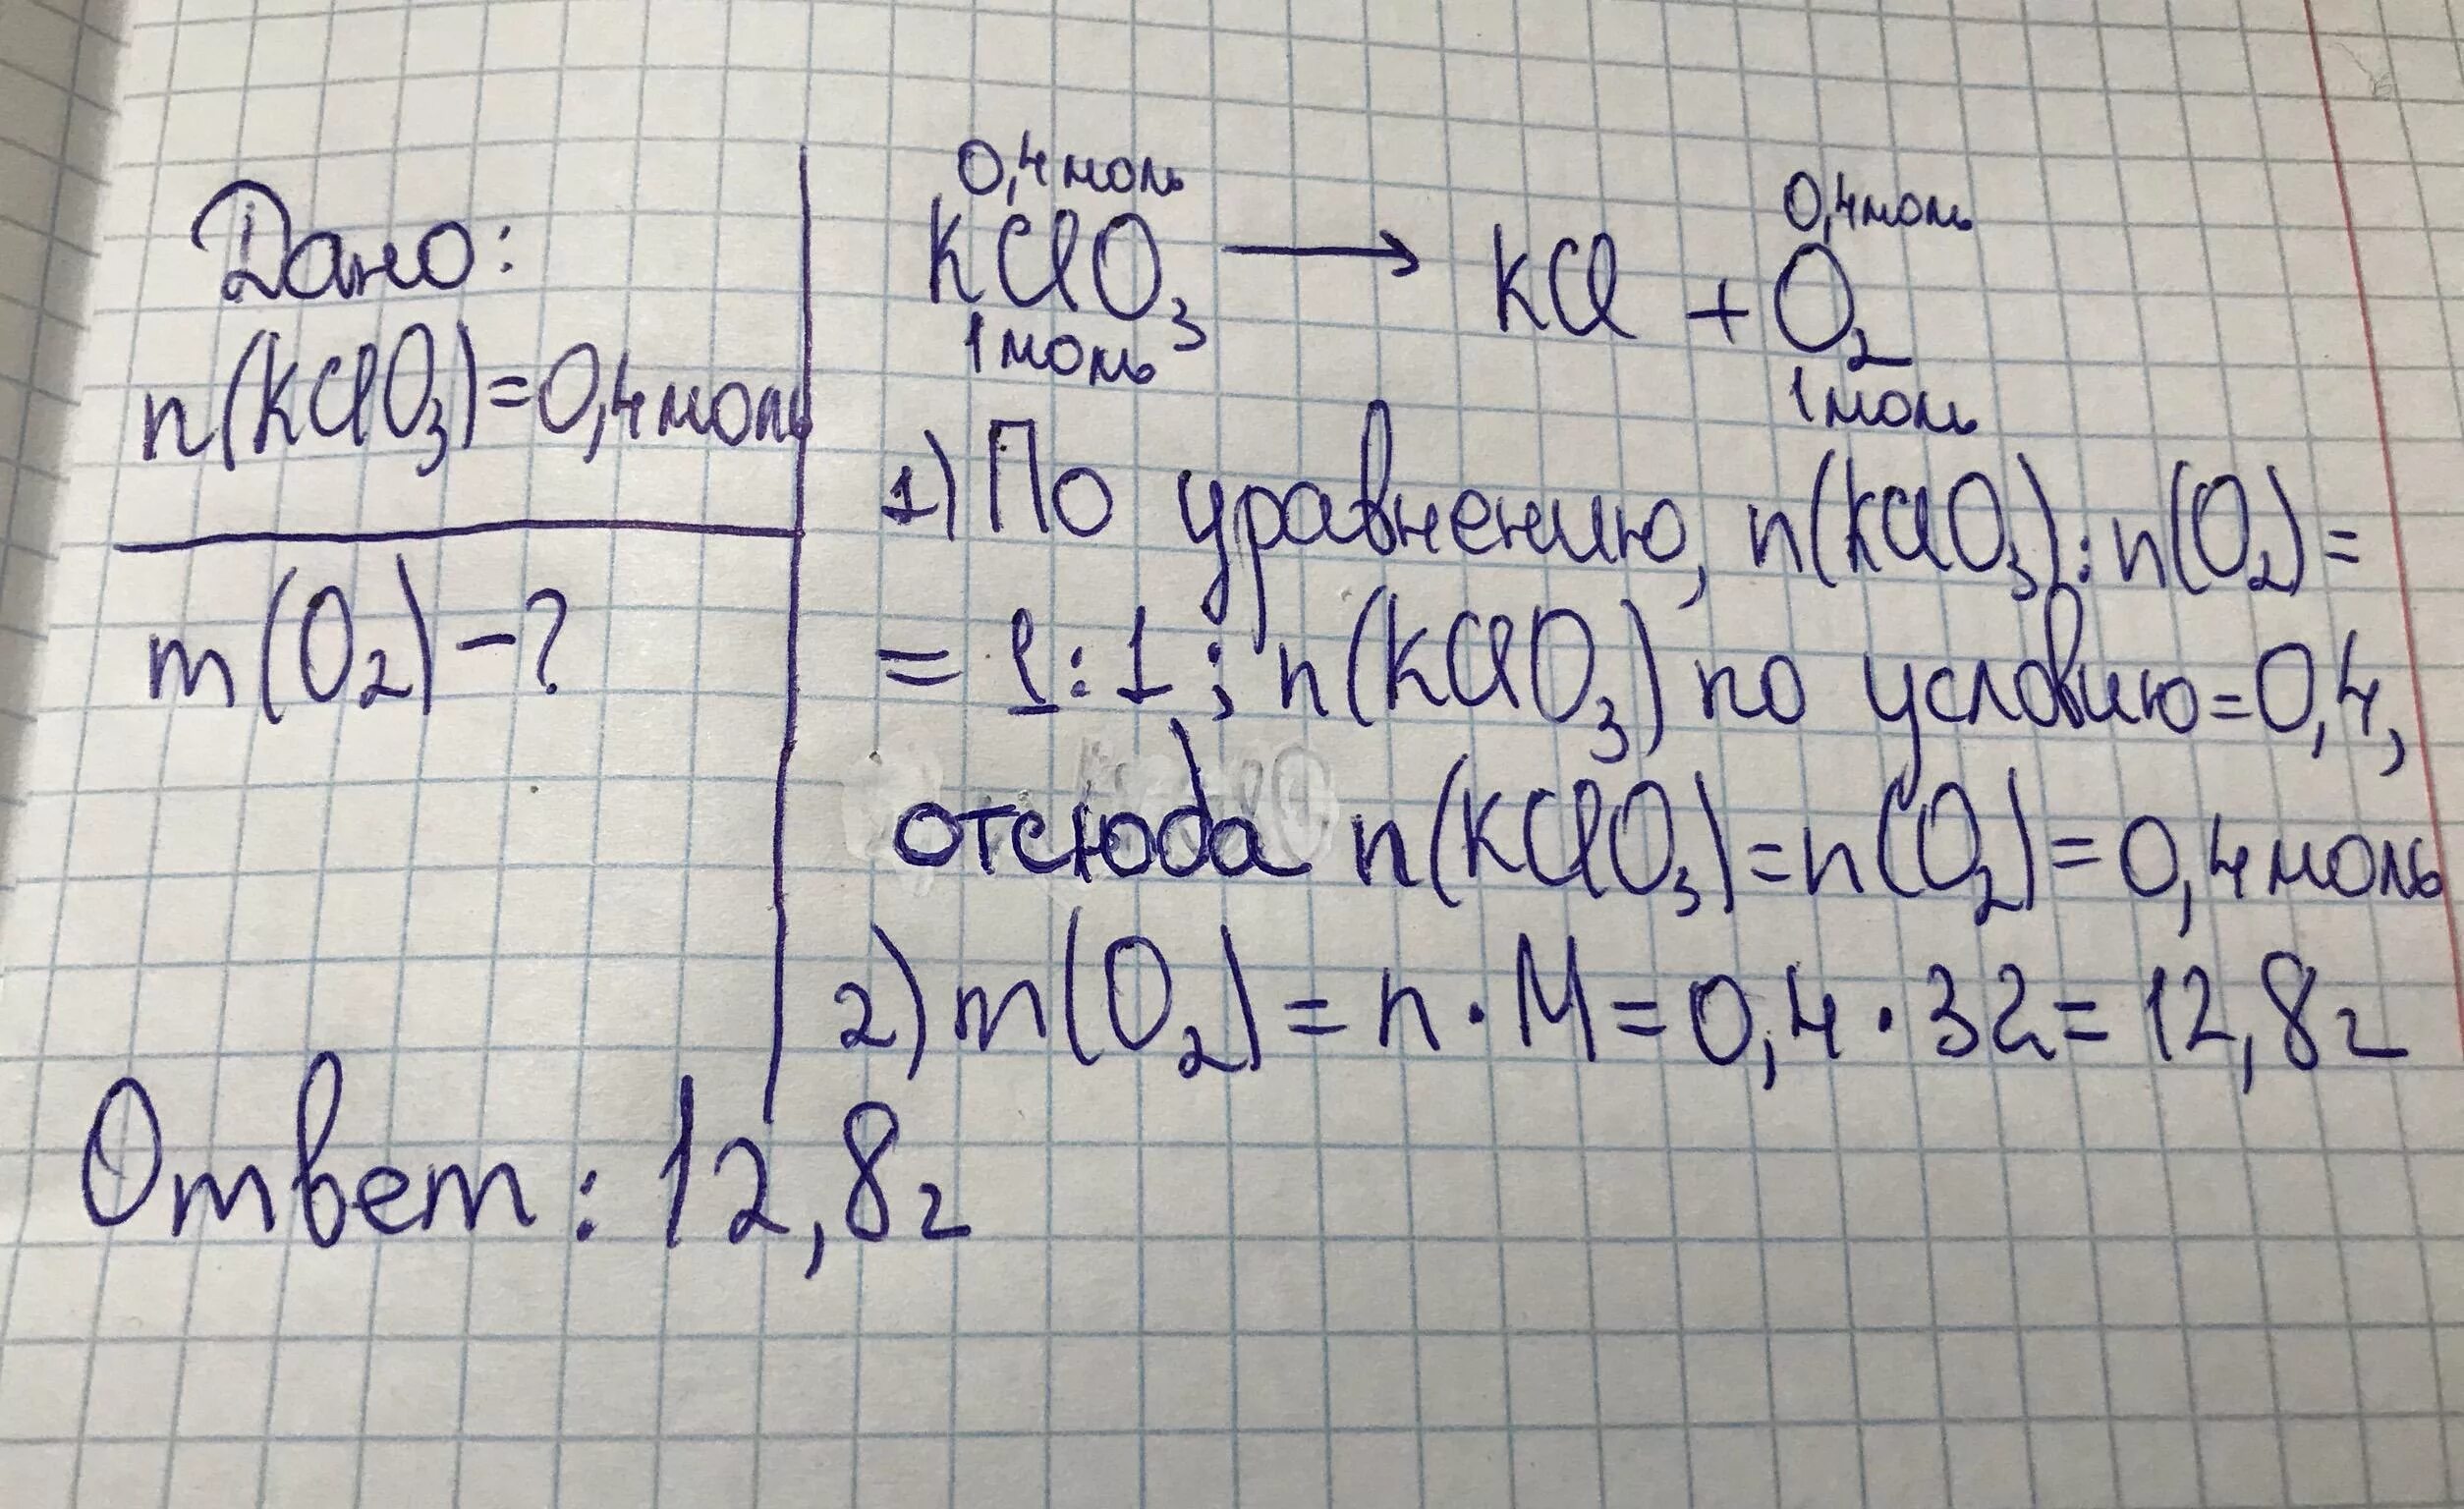 Дано:
n(KClO₃)=0,4моль
m(O₂)-?
0,4моль
0,4моль
KClO₃ → KCl + O₂
1моль
1моль
1) По уравнению, n(KClO₃):n(O₂)=
= 1:1; n(KClO₃) по условию=0,4,
отсюда n(KClO₃)=n(O₂)=0,4моль
2) m(O₂) = n·M=0,4·32=12,8г
Ответ: 12,8г